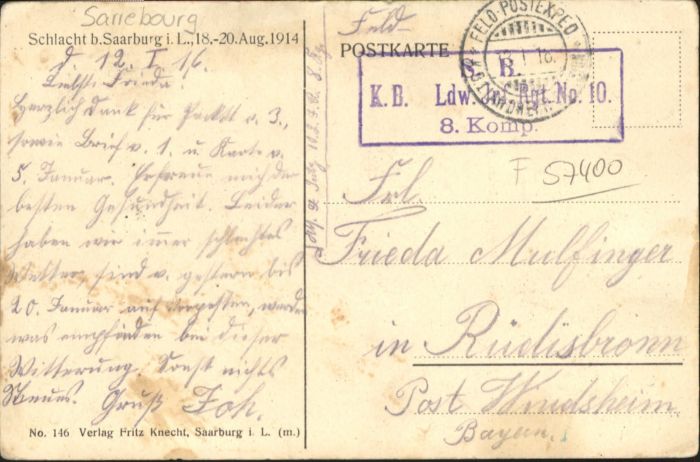 Sarrebourg
Schlacht b. Saarburg i. L., 18.-20. Aug. 1914
d. 12. I. 16.
Liebste Frieda!
Herzlich Dank für Packt v. 3.,
sowie Brief v. 1. u Karte v.
5 Januar. Erfreue mich der
besten Gesundheit. Leider
haben wir imer schlechtes
Wetter, sind v. gestern bis
20. Januar auf Vorposten, werden
was empfinden bei dieser
Witterung. Sonst nichts
Neues. Gruß Joh.
No. 146 Verlag Fritz Knecht, Saarburg i. L. (m.)
Feld-
POSTKARTE
FELD-POSTEXPED
S. B.
K. B. Ldw. Inf. Rgt. No. 10.
8. Komp.
F 57400
Frl.
Frieda Mulfinger
in Rüdisbronn
Post Windsheim
Bayern.